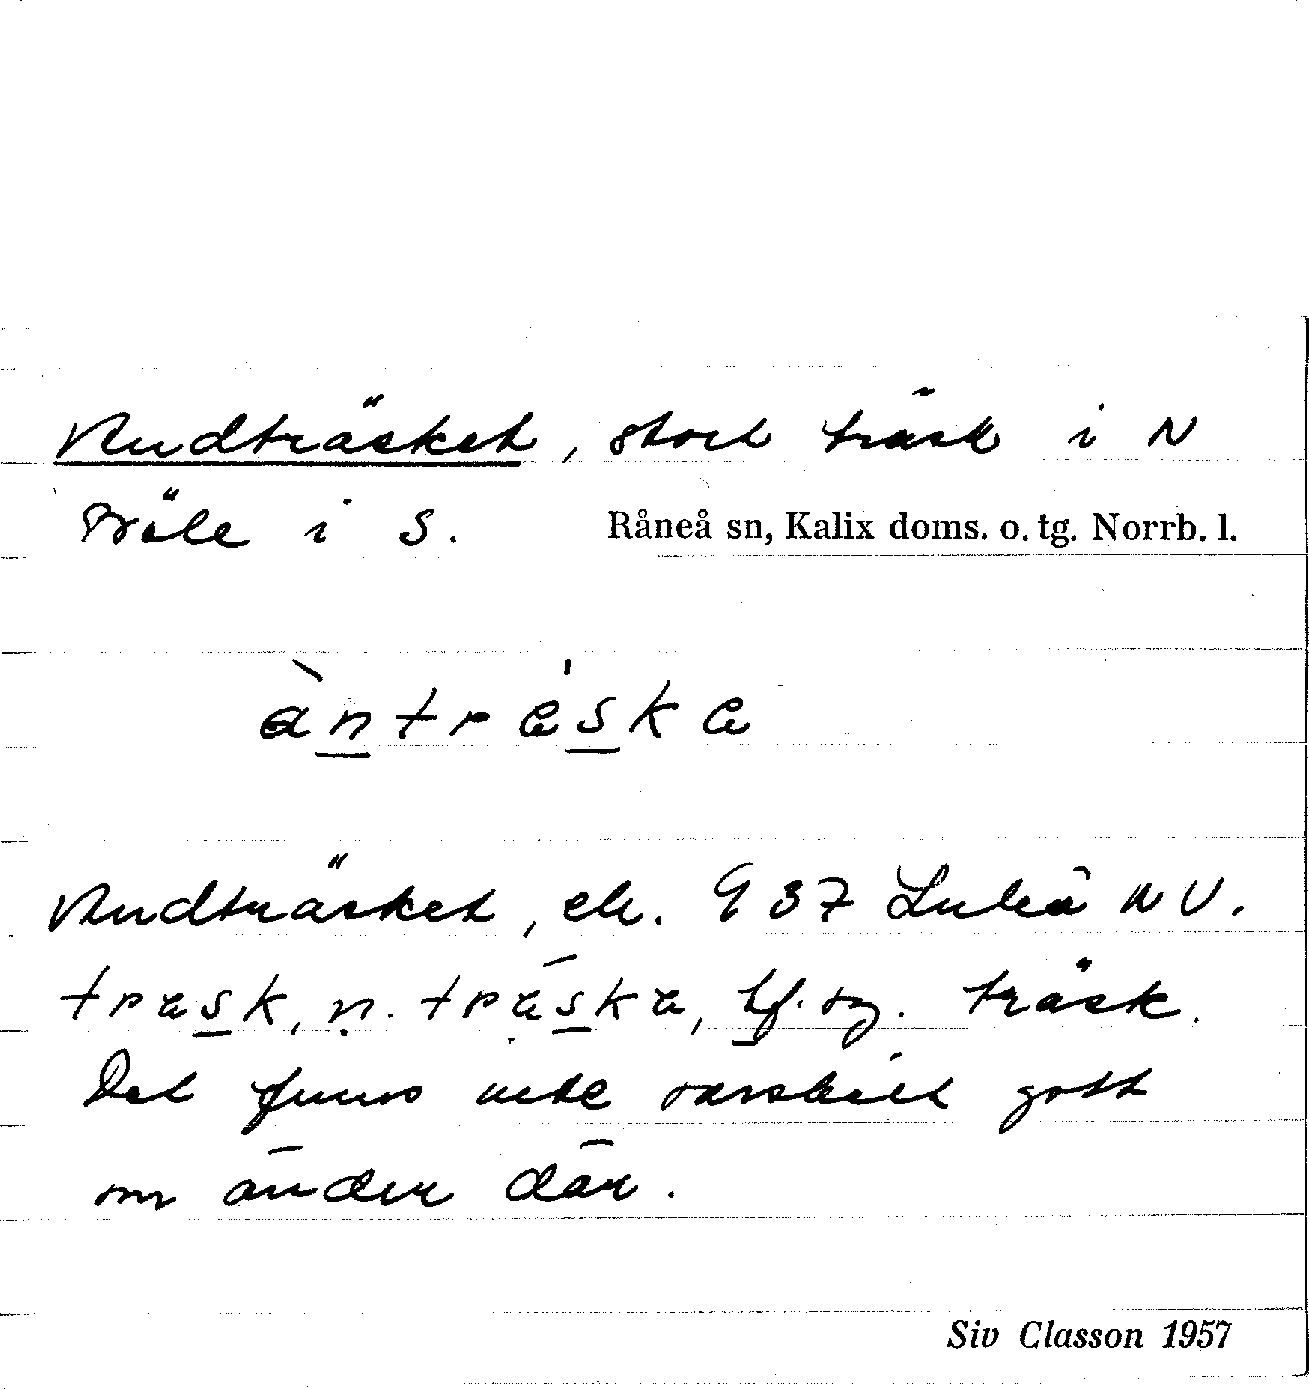 Andträsket, stort träsk i N
Böle i S. Råneå sn, Kalix doms. o. tg. Norrb. l.
àntræ̍ska
Andträsket, ek. 937 Luleå NV.
træsk, n. trǣska, bf. sg. träsk.
Det finns inte särskilt gott
om änder där.
Siv Classon 1957